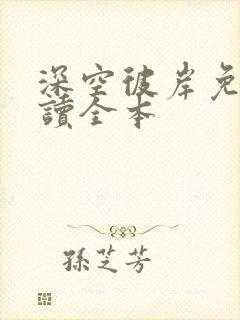 深空彼岸免
讀全本
孫芝芳